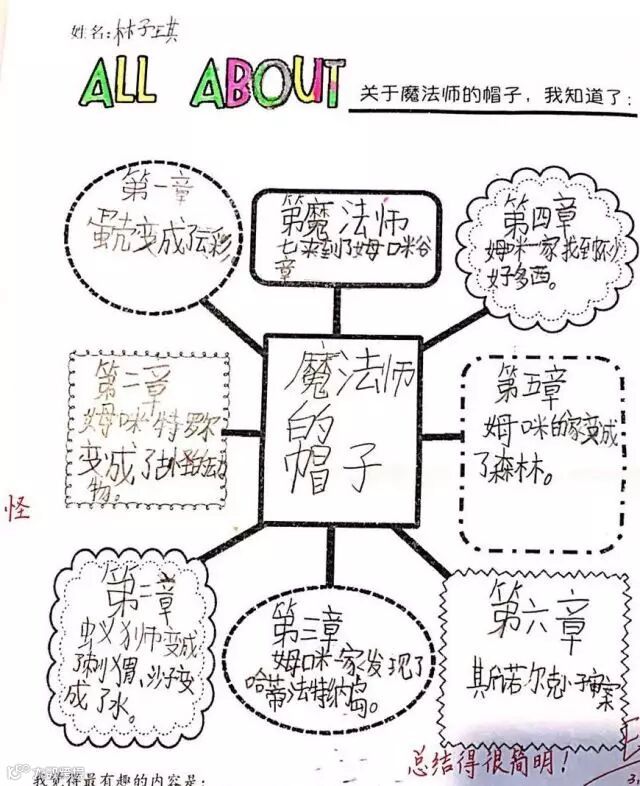 姓名:林子琪
ALL ABOUT 关于魔法师的帽子，我知道了：
第一章
蛋壳变成了云彩
第魔法师
七来到了姆咪谷
章
第四章
姆咪一家找到不少
好多西。
第二章
姆咪特罗尔
变成了
物。
怪
魔法师
的
帽子
第五章
姆咪的家变成
了森林。
第二章
蚁狮师变成
了刺猬、沙子变
成了水。
第三章
姆咪一家发现了
哈蒂法特纳岛。
第六章
其斯诺尔克小子审案
总结得很简明！
3.
我觉得最有趣的内容是：